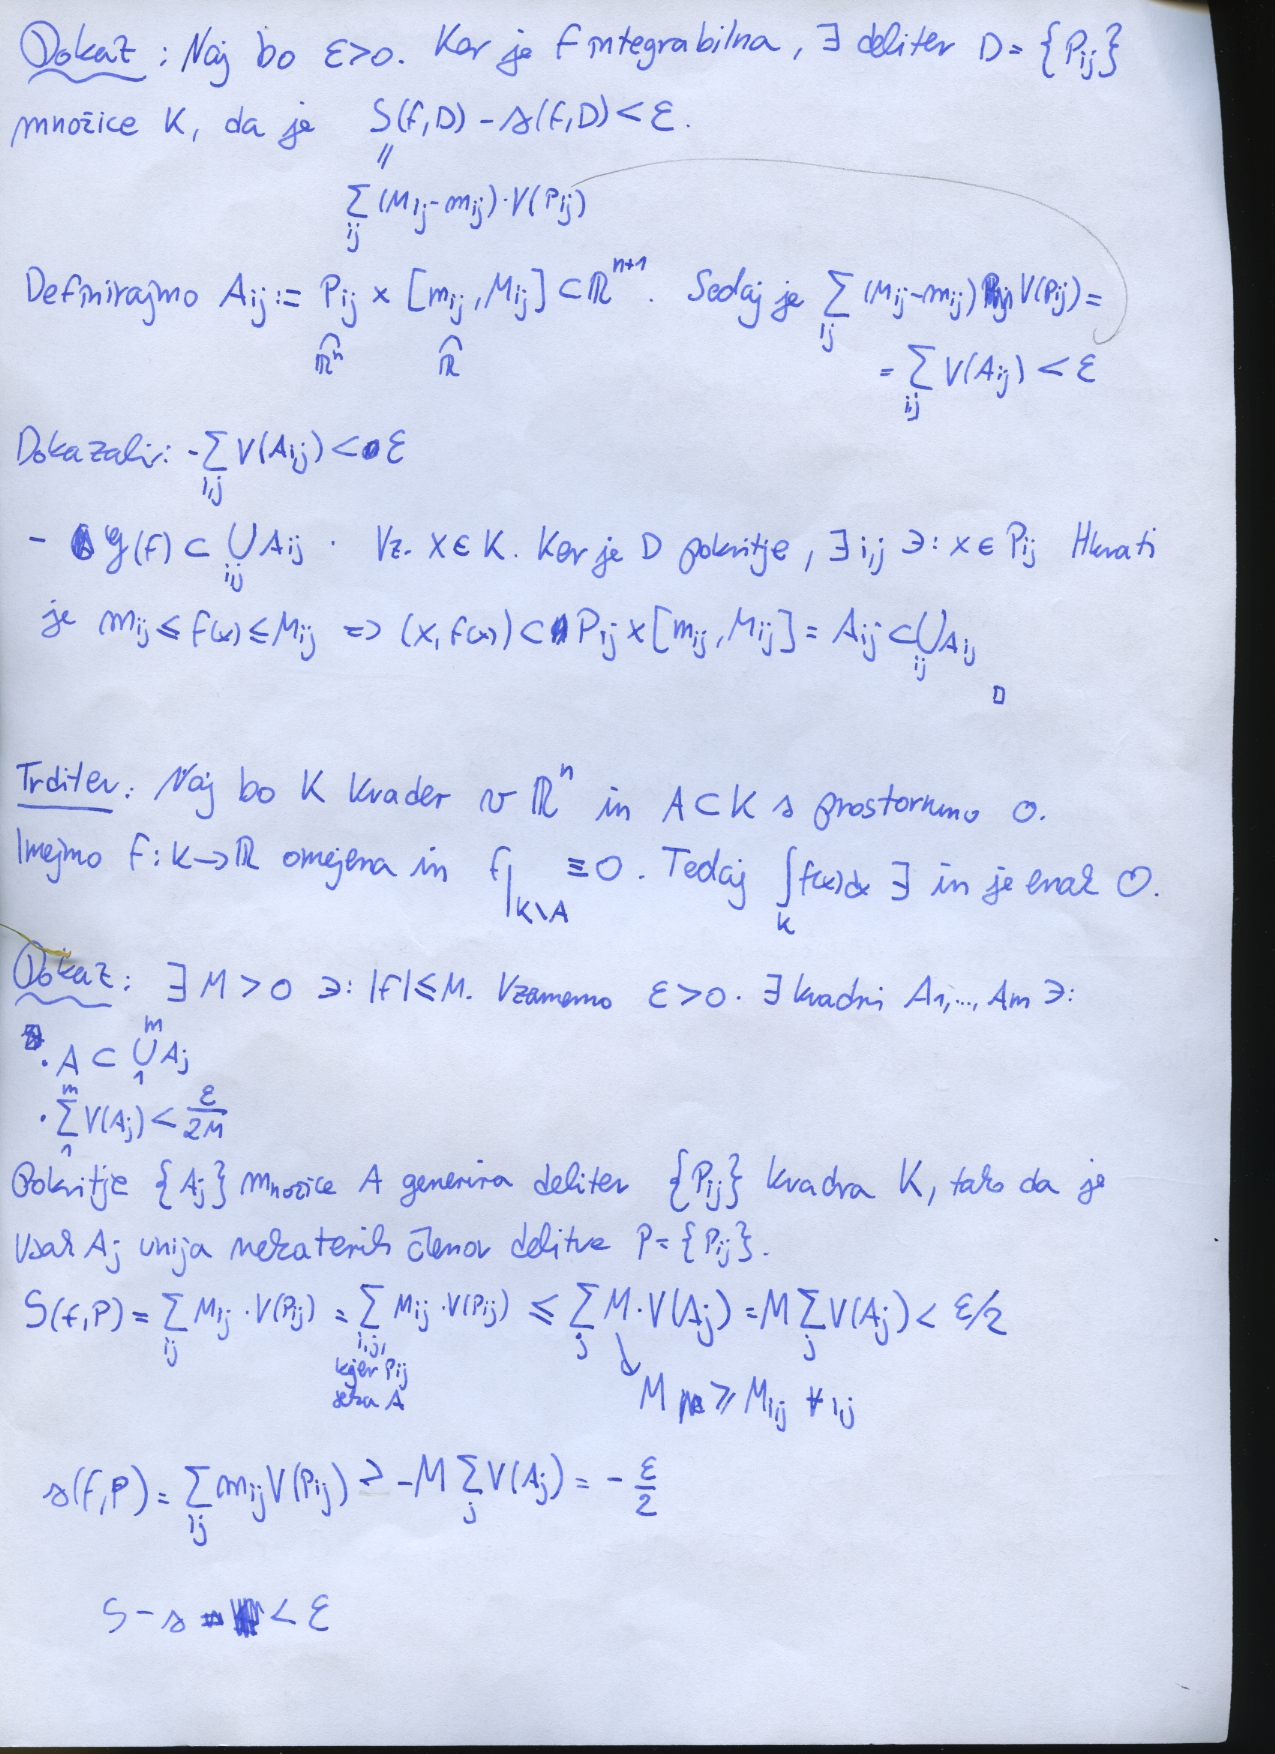 Dokaz: Naj bo ε>0. Ker je f integrabilna, ∃ delitev D = {Pij}
množice K, da je S(f,D) - s(f,D) < ε.
=
∑ij (Mij - mij)·V(Pij)
Definirajmo Aij := Pij × [mij, Mij] ⊂ ℝ^(n+1). Sedaj je ∑ij (Mij - mij) V(Pij) =
ℝ^n ℝ
= ∑i,j V(Aij) < ε
Dokazali: - ∑i,j V(Aij) < ε
- G(f) ⊂ ⋃i,j Aij. Vz. x ∈ K. Ker je D pokritje, ∃ i,j ∋: x ∈ Pij Hkrati
je mij ≤ f(x) ≤ Mij => (x, f(x)) ⊂ Pij × [mij, Mij] = Aij ⊂ ⋃ij Aij
□
Trditev: Naj bo K kvader v ℝ^n in A ⊂ K s prostornino 0.
Imejmo f: K → ℝ omejena in f|K\A ≡ 0. Tedaj ∫K f(x)dx ∃ in je enak 0.
Dokaz: ∃ M > 0 ∋: |f| ≤ M. Vzamemo ε > 0. ∃ kvadri A1, ..., Am ∋:
· A ⊂ ⋃_1^m Aj
· ∑_1^m V(Aj) < ε/2M
Pokritje {Aj} množice A generira delitev {Pij} kvadra K, tako da je
vsak Aj unija nekaterih členov delitve P = {Pij}.
S(f,P) = ∑ij Mij · V(Pij) = ∑i,j, Mij · V(Pij) ≤ ∑j M · V(Aj) = M ∑j V(Aj) < ε/2
kjer Pij
seka A
M ≥ Mij ∀ ij
s(f,P) = ∑ij mij V(Pij) ≥ -M ∑j V(Aj) = - ε/2
S - s < ε